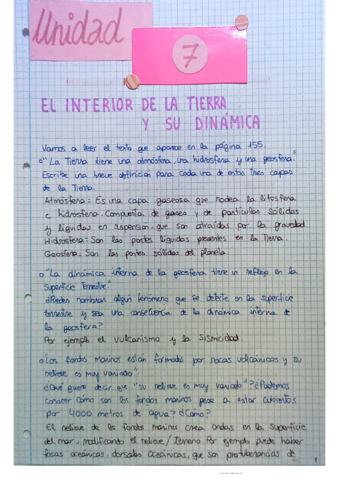 Unidad
7
EL INTERIOR DE LA TIERRA
Y SU DINÁMICA
Vamos a leer el texto que aparece en la página 155.
"La Tierra tiene una atmósfera, una hidrosfera y una geosfera"
Escribe una breve definición para cada una de estas tres capas
de la Tierra.
Atmósfera: Es una capa gaseosa que rodea la litosfera
e hidrosfera. Compuesta de gases y de partículas sólidas
y líquidas en suspensión, que son atraídas por la gravedad
Hidrosfera: Son las partes líquidas presentes en la Tierra.
Geosfera: Son las partes sólidas del planeta
"La dinámica interna de la geosfera tiene un reflejo en la
superficie terrestre"
¿Puedes nombrar algún fenómeno que se detecte en la superficie
terrestre y sea una consecuencia de la dinámica interna de
la geosfera?
Por ejemplo el vulcanismo y la sismicidad.
Los fondos marinos están formados por rocas volcánicas y su
relieve es muy variado"
¿Qué quiere decir que "su relieve es muy variado"? ¿Podemos
conocer como son los fondos marinos pese a estar cubiertos
por 4000 metros de agua? ¿Cómo?
El relieve de los fondos marinos crea ondas en la superficie
del mar, modificando el relieve/terreno. Por ejemplo puede haber
fosas oceánicas, dorsales oceánicas, que son protuberancias de
1